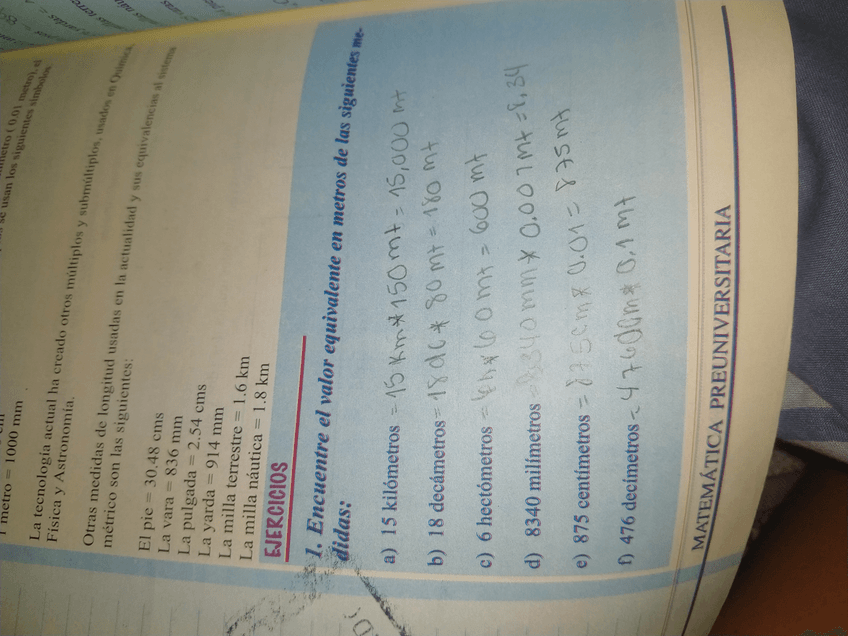 metro (0.01 metro), el
se usan los siguientes símbolos
1 metro = 1000 mm
La tecnología actual ha creado otros múltiplos y submúltiplos, usados en Química,
Física y Astronomía.
Otras medidas de longitud usadas en la actualidad y sus equivalencias al sistema
métrico son las siguientes:
El pie = 30.48 cms
La vara = 836 mm
La pulgada = 2.54 cms
La yarda = 914 mm
La milla terrestre = 1.6 km
La milla náutica = 1.8 km
EJERCICIOS
1. Encuentre el valor equivalente en metros de las siguientes me-
didas:
a) 15 kilómetros = 15 Km * 150 mt = 15,000 mt
b) 18 decámetros = 18 dc * 80 mt = 180 mt
c) 6 hectómetros = 6h * 60 mt = 600 mt
d) 8340 milímetros = 8340 mm * 0.001 mt = 8,34
e) 875 centímetros = 875 cm * 0.01 = 875 mt
f) 476 decímetros = 476 dm * 0.1 mt
MATEMÁTICA PREUNIVERSITARIA